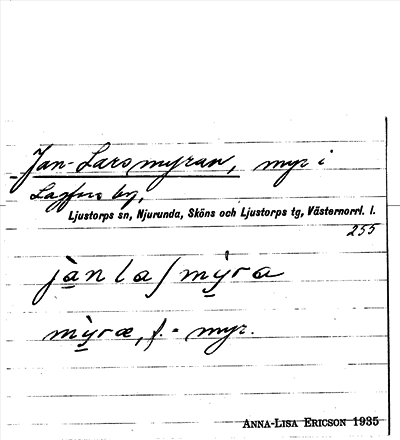 Jan-Larsmyran, myr i
Lagfors by,
Ljustorps sn, Njurunda, Sköns och Ljustorps tg, Västernorrl. l.
255
jànlaʃmỳra
mỳræ, f. = myr.
ANNA-LISA ERICSON 1935